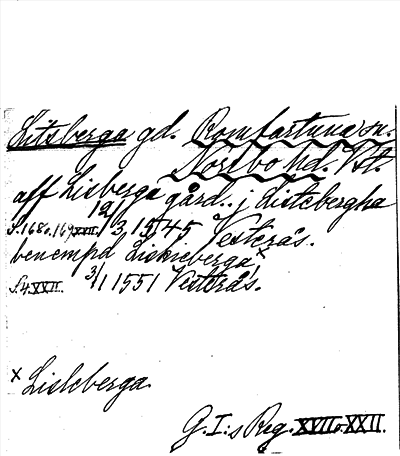 Litsberga gd. Romfartuna sn.
Norrbo hd. Vstl.
aff Lisberga gård.. j Listebergha
s. 168 o. 169 XVII. 12/3 1545 Vesterås.
benempd Liskieberga x
s. 4 XXII. 3/1 1551 Vesterås.
x Lisleberga.
G. I:s Reg. XVII o. XXII.